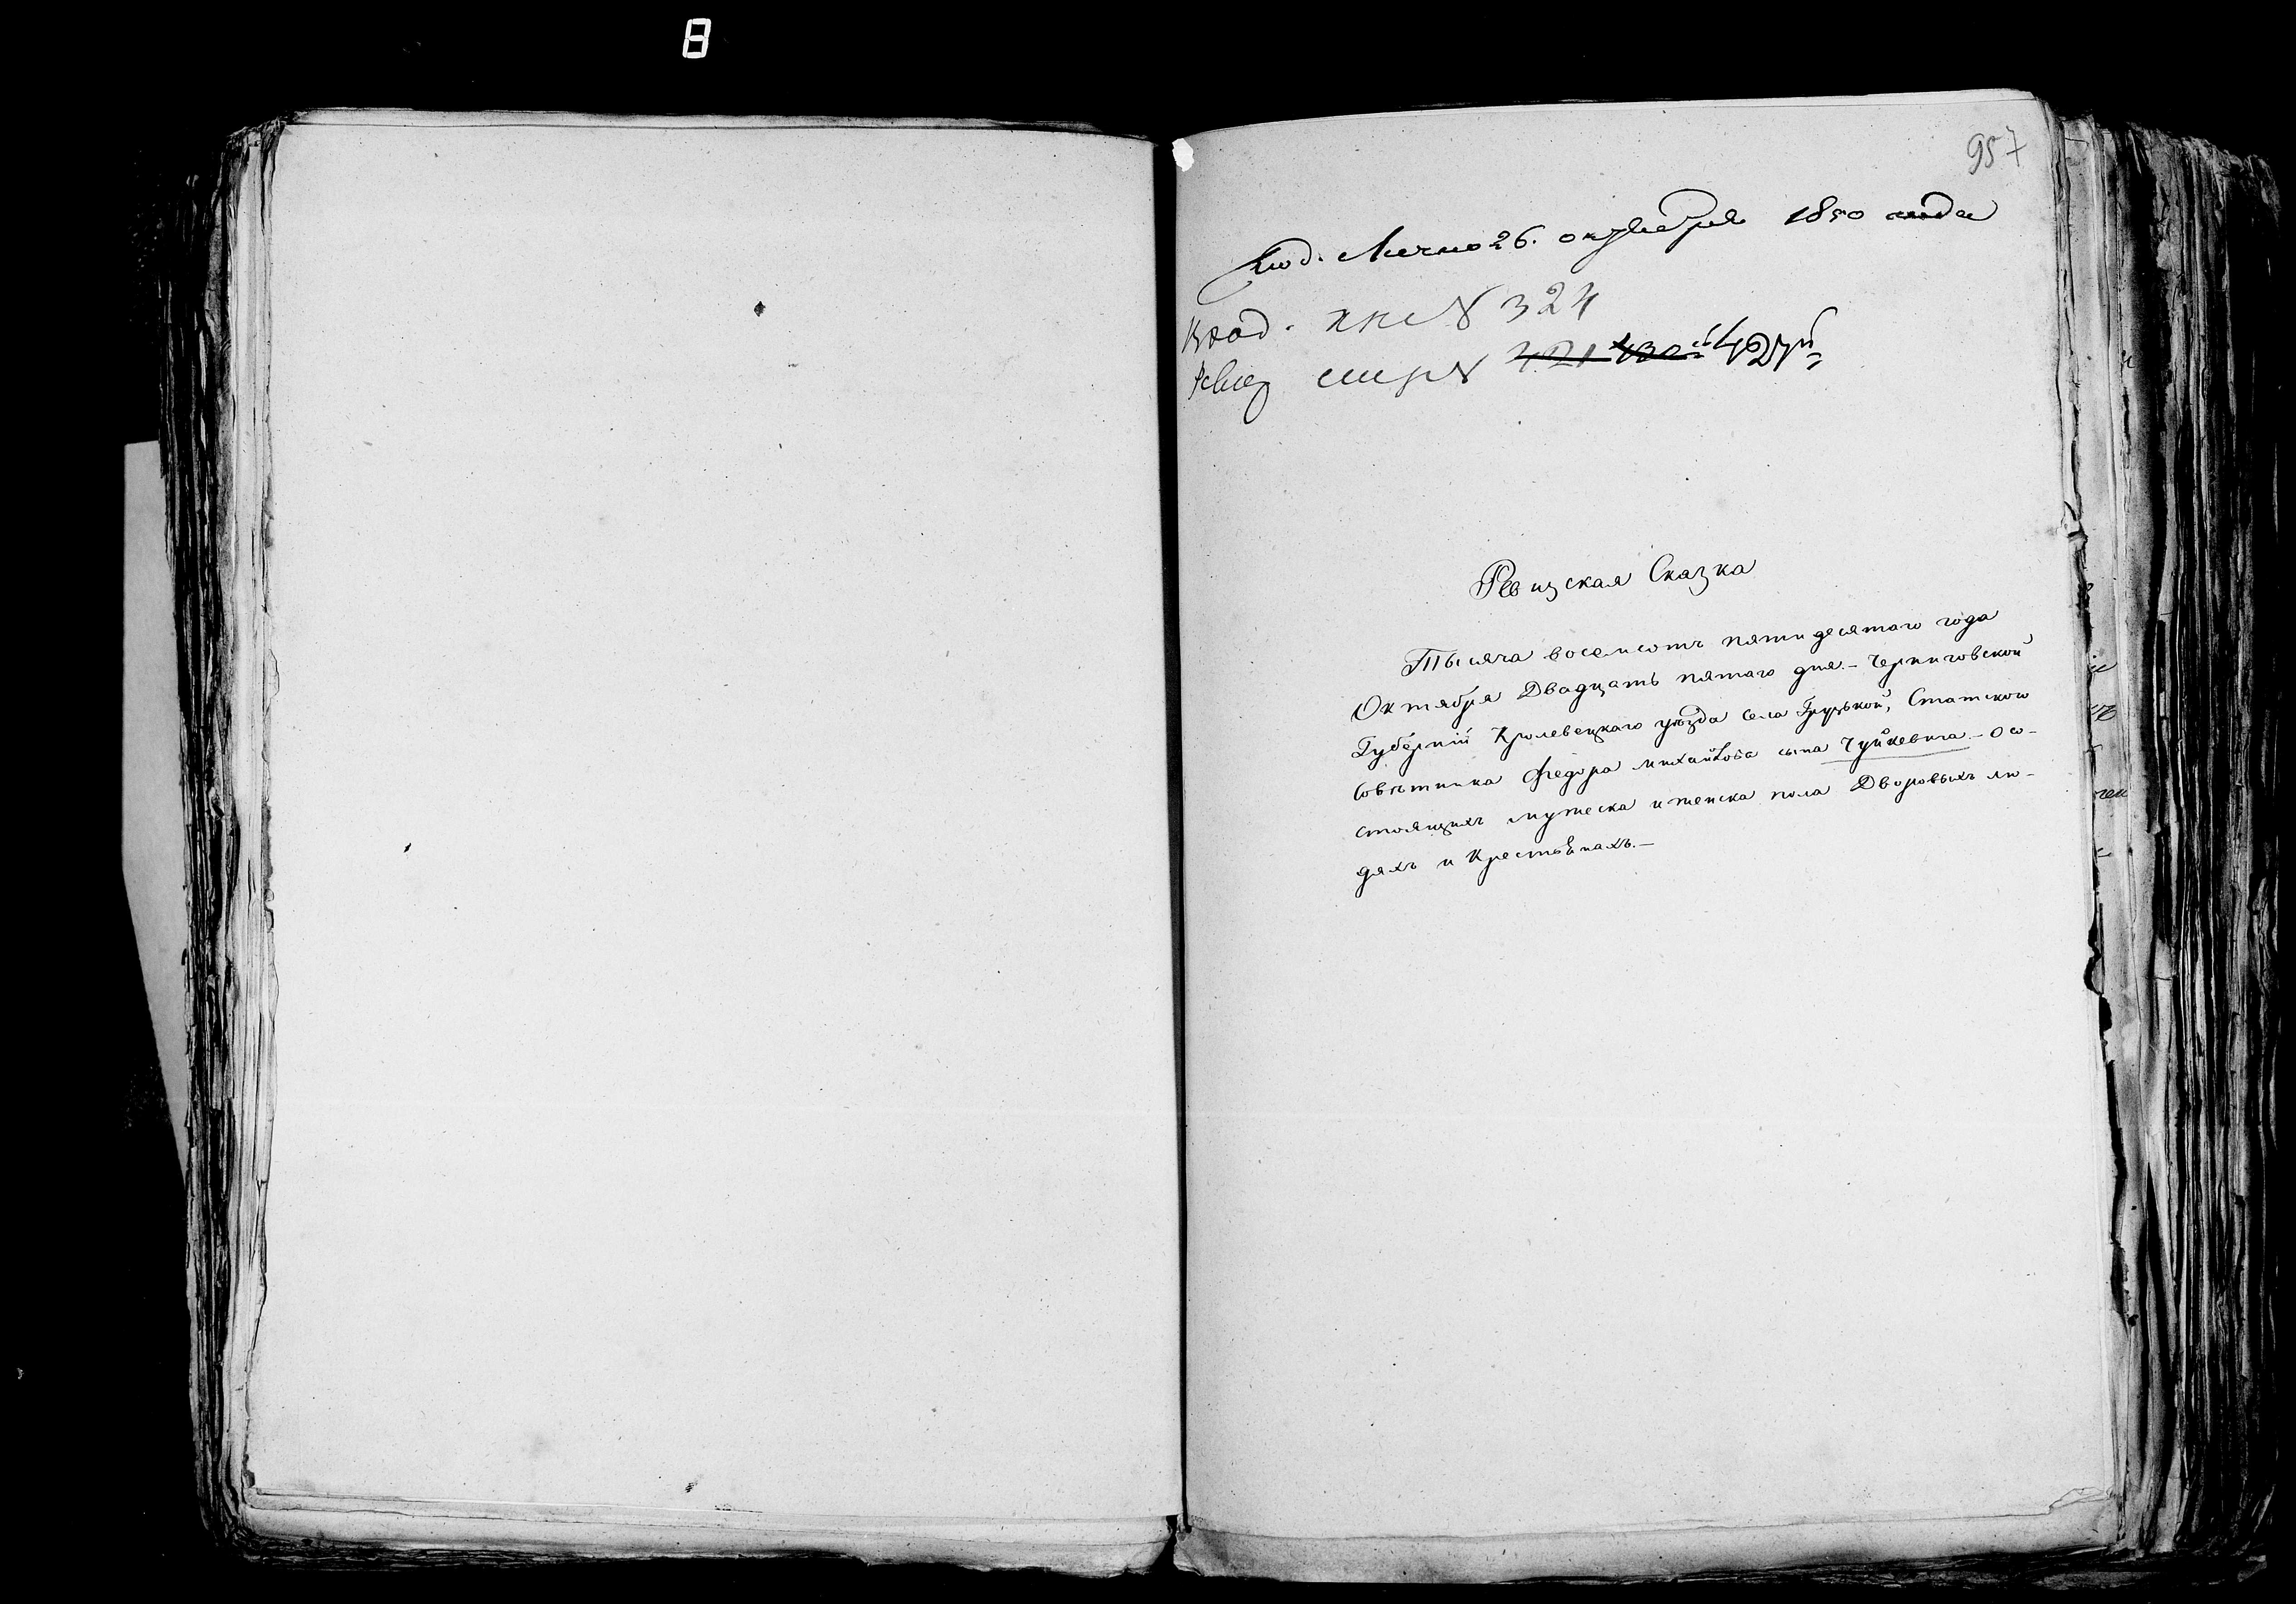 8
957
Под. Лично 26. октября 1850 года
Вход. кн № 324
Ревиз № 421 430й 427й
Ревизская Сказка
Тысяча восемсотъ пятидесятаго года
Октября Двадцать пятаго дня. – Черниговской
Губерніи Кролевецкаго уѣзда Села Грузькой, Статского
Совѣтника Федора михайлова сына Чуйкевича. – О со-
стоящихъ мужеска и женска пола Дворовыхъ лю-
дяхъ и Крестьянахъ. –